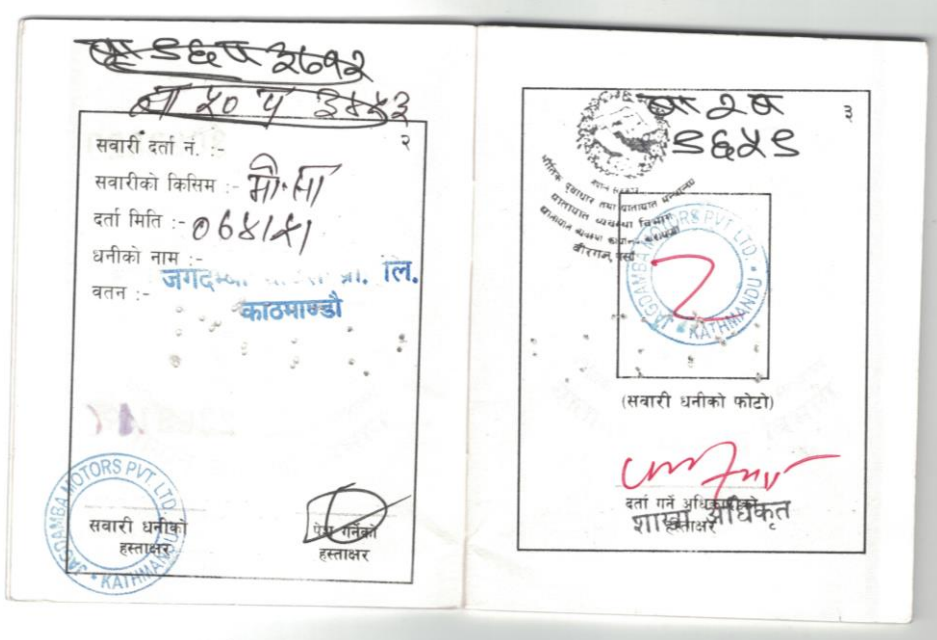 बा ९६ प ३७१२
बा ५० प ३४५३
२
सवारी दर्ता नं. :-
सवारीको किसिम :- मो.सा
दर्ता मिति :- ०६४।५।
धनीको नाम :-
जगदम्बा प्रा. लि.
वतन :-
काठमाण्डौ
JAGDAMBA MOTORS PVT. LTD. KATHMANDU
सवारी धनीको
हस्ताक्षर
पेश गर्नेको
हस्ताक्षर
३
बा २ ब
९६५९
भौतिक पूर्वाधार तथा यातायात मन्त्रालय
यातायात व्यवस्था विभाग
यातायात व्यवस्था कार्यालय
वीरगन्ज, पर्सा
JAGDAMBA MOTORS PVT LTD. KATHMANDU
(सवारी धनीको फोटो)
दर्ता गर्ने अधिकारीको
हस्ताक्षर
शाखा अधिकृत